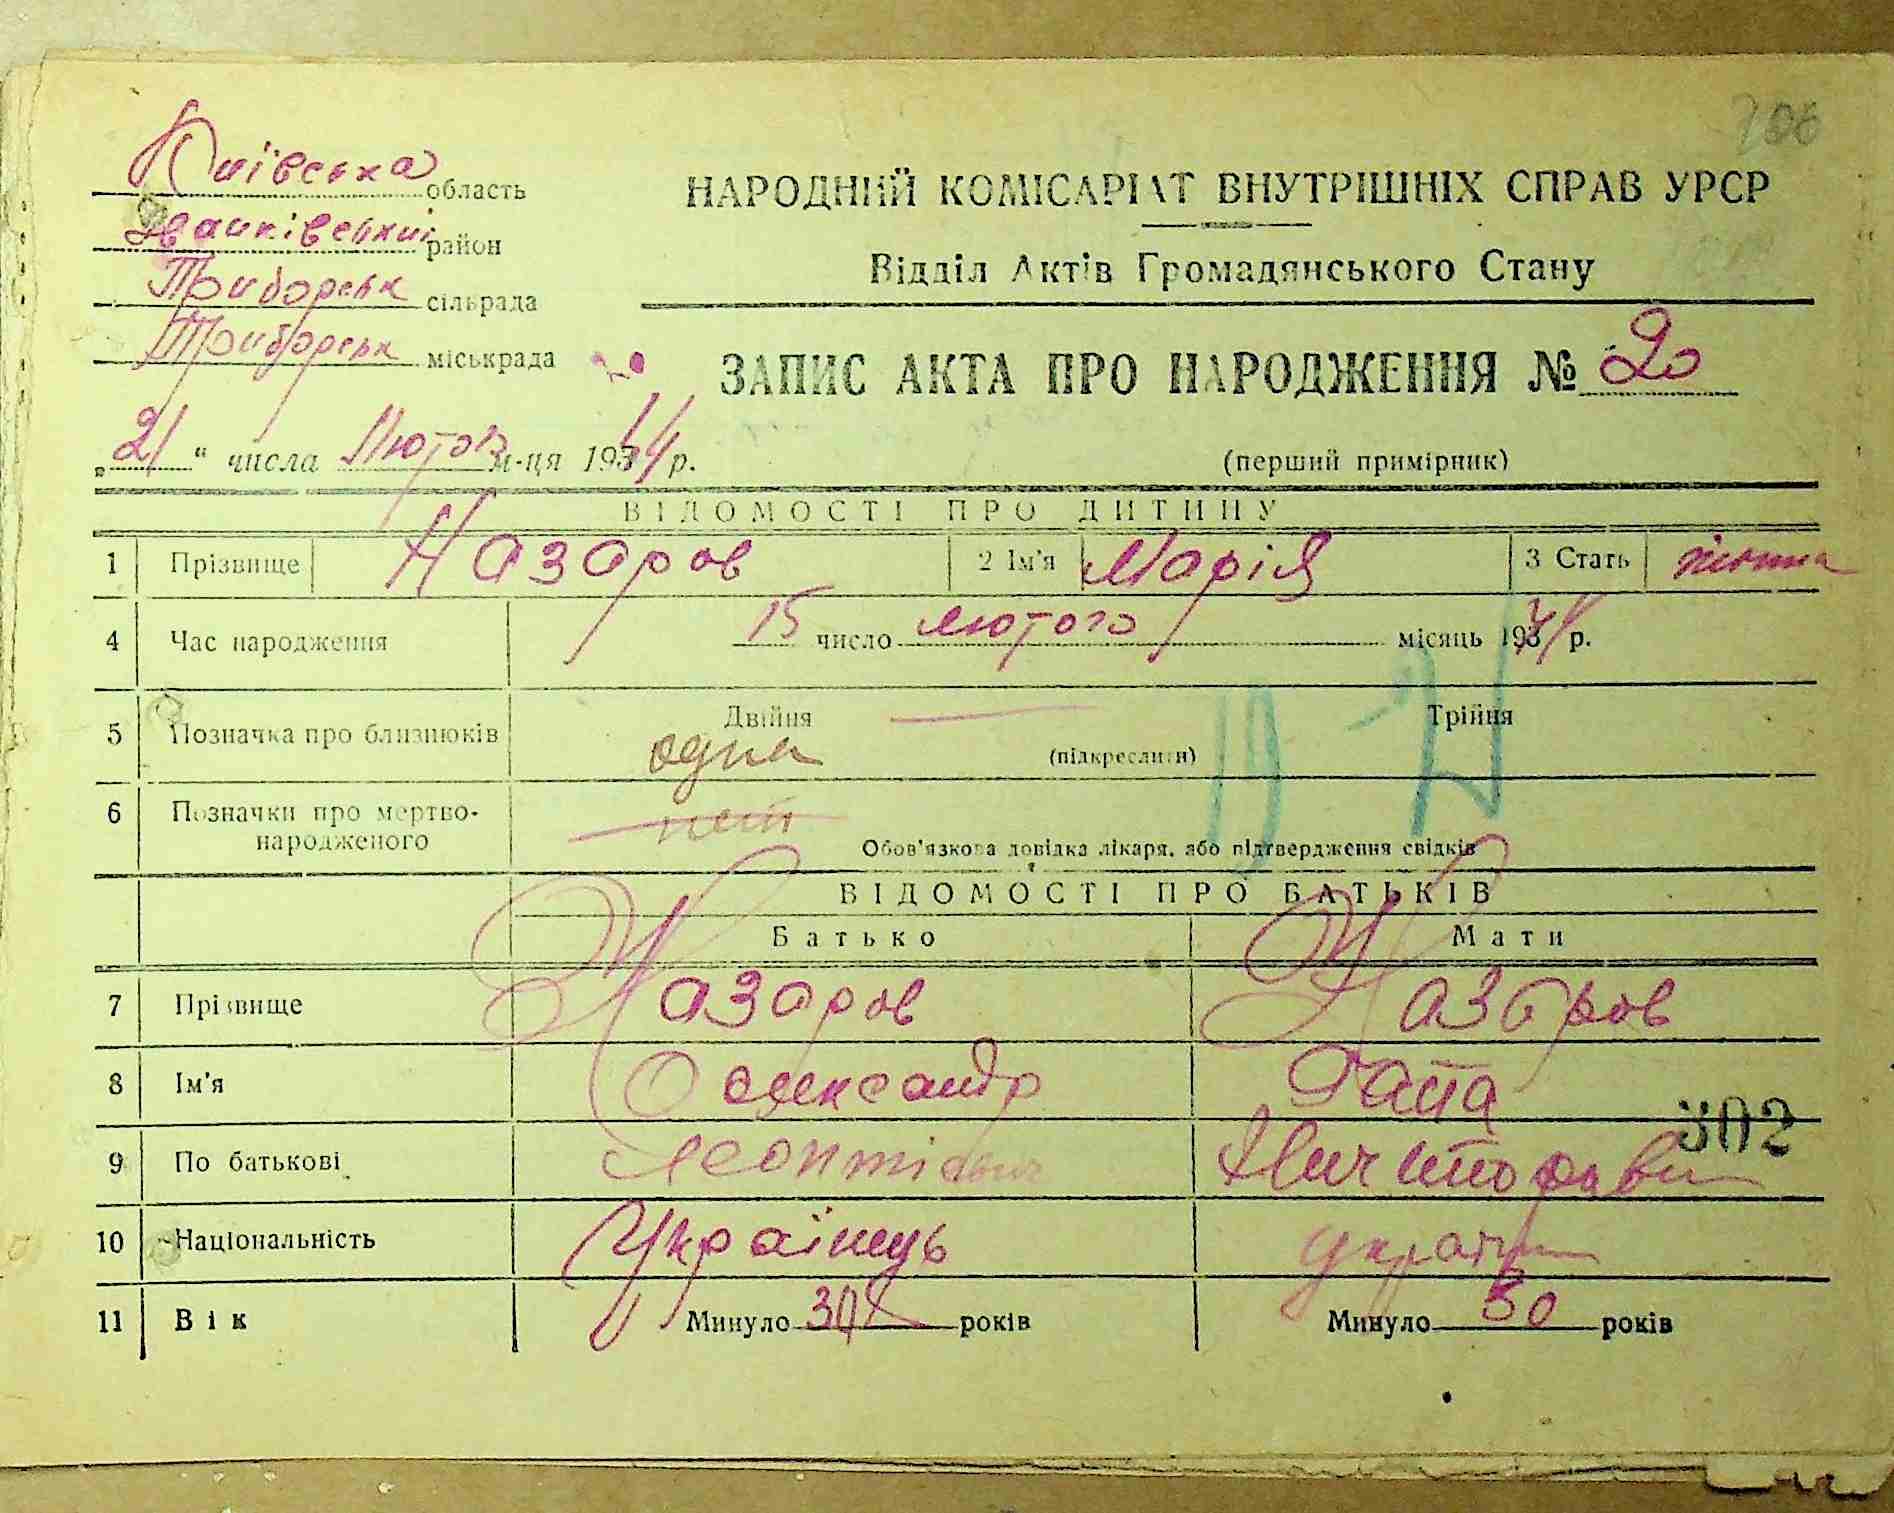 206
Київська область
Іванківський район
Приборськ сільрада
Приборськ міськрада
НАРОДНИЙ КОМІСАРІАТ ВНУТРІШНІХ СПРАВ УРСР
Відділ Актів Громадянського Стану
ЗАПИС АКТА ПРО НАРОДЖЕННЯ № 20
„21“ числа Лютого м-ця 1944 р.
(перший примірник)
ВІДОМОСТІ ПРО ДИТИНУ
1 Прізвище Назаров 2 Ім'я Марія 3 Стать
4 Час народження 15 число лютого місяць 1944 р.
5 Позначка про близнюків Двійня Трійня
одна (підкреслити)
6 Позначки про мертво-
народженого нет
Обов'язкова довідка лікаря, або підтвердження свідків
ВІДОМОСТІ ПРО БАТЬКІВ
Батько Мати
7 Прізвище Назаров Назаров
8 Ім'я Олександр
302
9 По батькові Леонтієвич
10 Національність Українець
11 Вік Минуло років Минуло 30 років